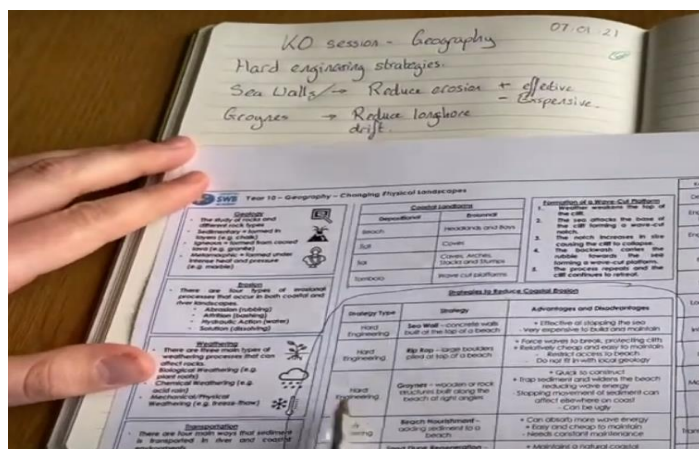 KO session - Geography
07.01.21
Hard engineering strategies.
Sea Walls → Reduce erosion + effective
- Expensive.
Groynes → Reduce longhore
drift.
SWB
Year 10 – Geography – Changing Physical Landscapes
Geology
The study of rocks and
different rock types
Sedimentary = formed in
layers (e.g. chalk)
Igneous = formed from cooled
lava (e.g. granite)
Metamorphic = formed under
intense heat and pressure
(e.g. marble)
Erosion
There are four types of erosional
processes that occur in both coastal and
river landscapes.
Abrasion (rubbing)
Attrition (bashing)
Hydraulic Action (water)
Solution (dissolving)
Weathering
There are three main types of
weathering processes that can
affect rocks.
Biological Weathering (e.g.
plant roots)
Chemical Weathering (e.g.
acid rain)
Mechanical/Physical
Weathering (e.g. freeze-thaw)
Transportation
There are four main ways that sediment
is transported in river and coastal
environments
Coastal Landforms
Depositional Erosional
Beach Headlands and Bays
Spit Caves
Bar Caves, Arches,
Stacks and Stumps
Tombolo Wave cut platforms
Formation of a Wave-Cut Platform
1. Weather weakens the top of
the cliff.
2. The sea attacks the base of
the cliff forming a wave-cut
notch.
3. The notch increases in size
causing the cliff to collapse.
4. The backwash carries the
rubble towards the sea
forming a wave-cut platform.
5. The process repeats and the
cliff continues to retreat.
Strategies to Reduce Coastal Erosion
Strategy Type Strategy Advantages and Disadvantages
Hard
Engineering
Sea Wall – concrete walls
built at the top of a beach
+ Effective at stopping the sea
- Very expensive to build and maintain
Hard
Engineering
Rip Rap – large boulders
piled at top of a beach
+ Force waves to break, protecting cliffs
+ Relatively cheap and easy to maintain
- Restrict access to beach
- Do not fit in with local geology
Hard
Engineering
Groynes – wooden or rock
structures built along the
beach at right angles
+ Quick to construct
+ Trap sediment and widens the beach
reducing wave energy
- Stopping movement of sediment can
affect elsewhere on coast
- Can be ugly
Beach Nourishment –
adding sediment to a
beach
+ Can absorb more wave energy
+ Easy and cheap to maintain
- Needs constant maintenance
+ Maintains a natural coastal